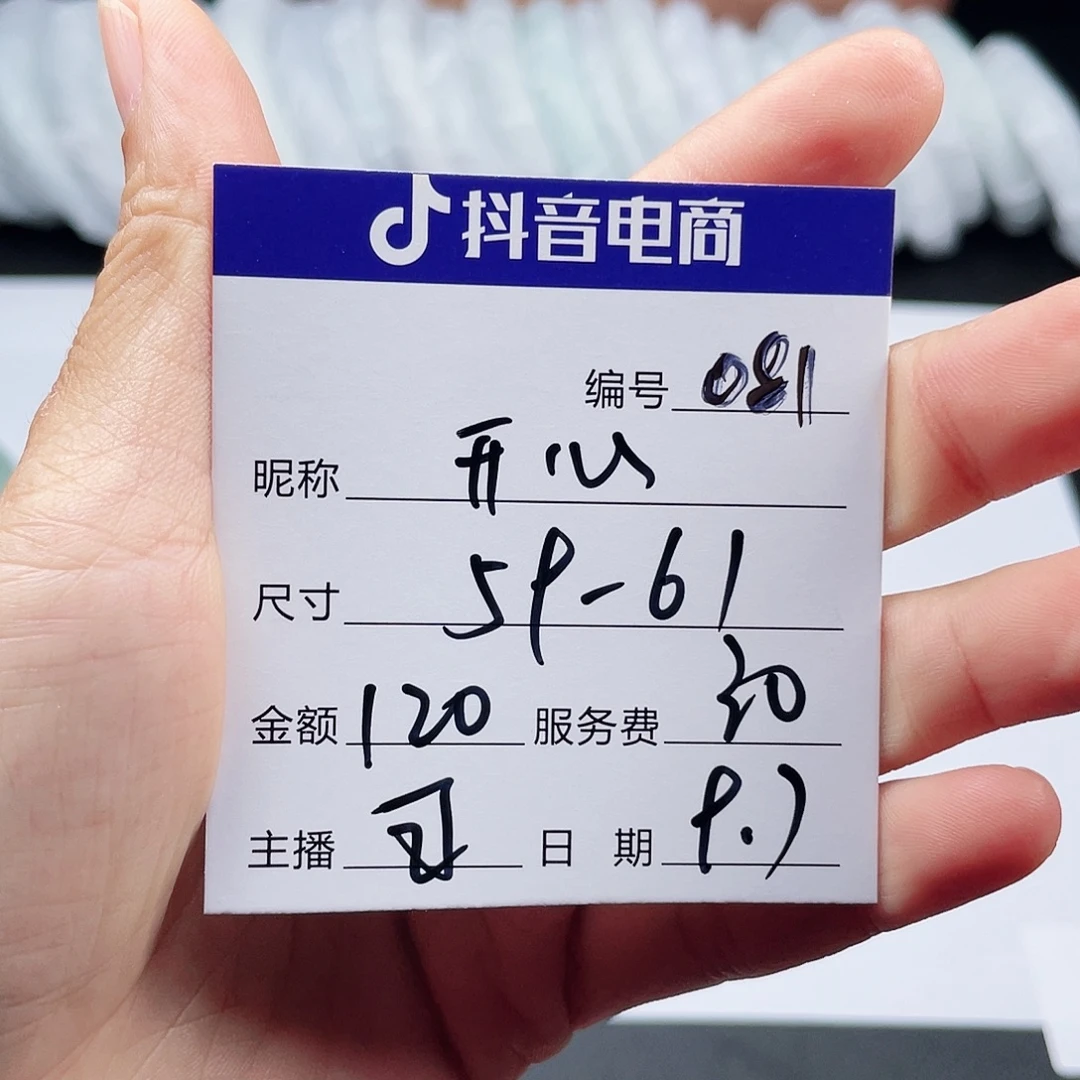 抖音电商
编号 081
昵称 开心
尺寸 59-61
金额 120 服务费 30
主播 日 期 9.7